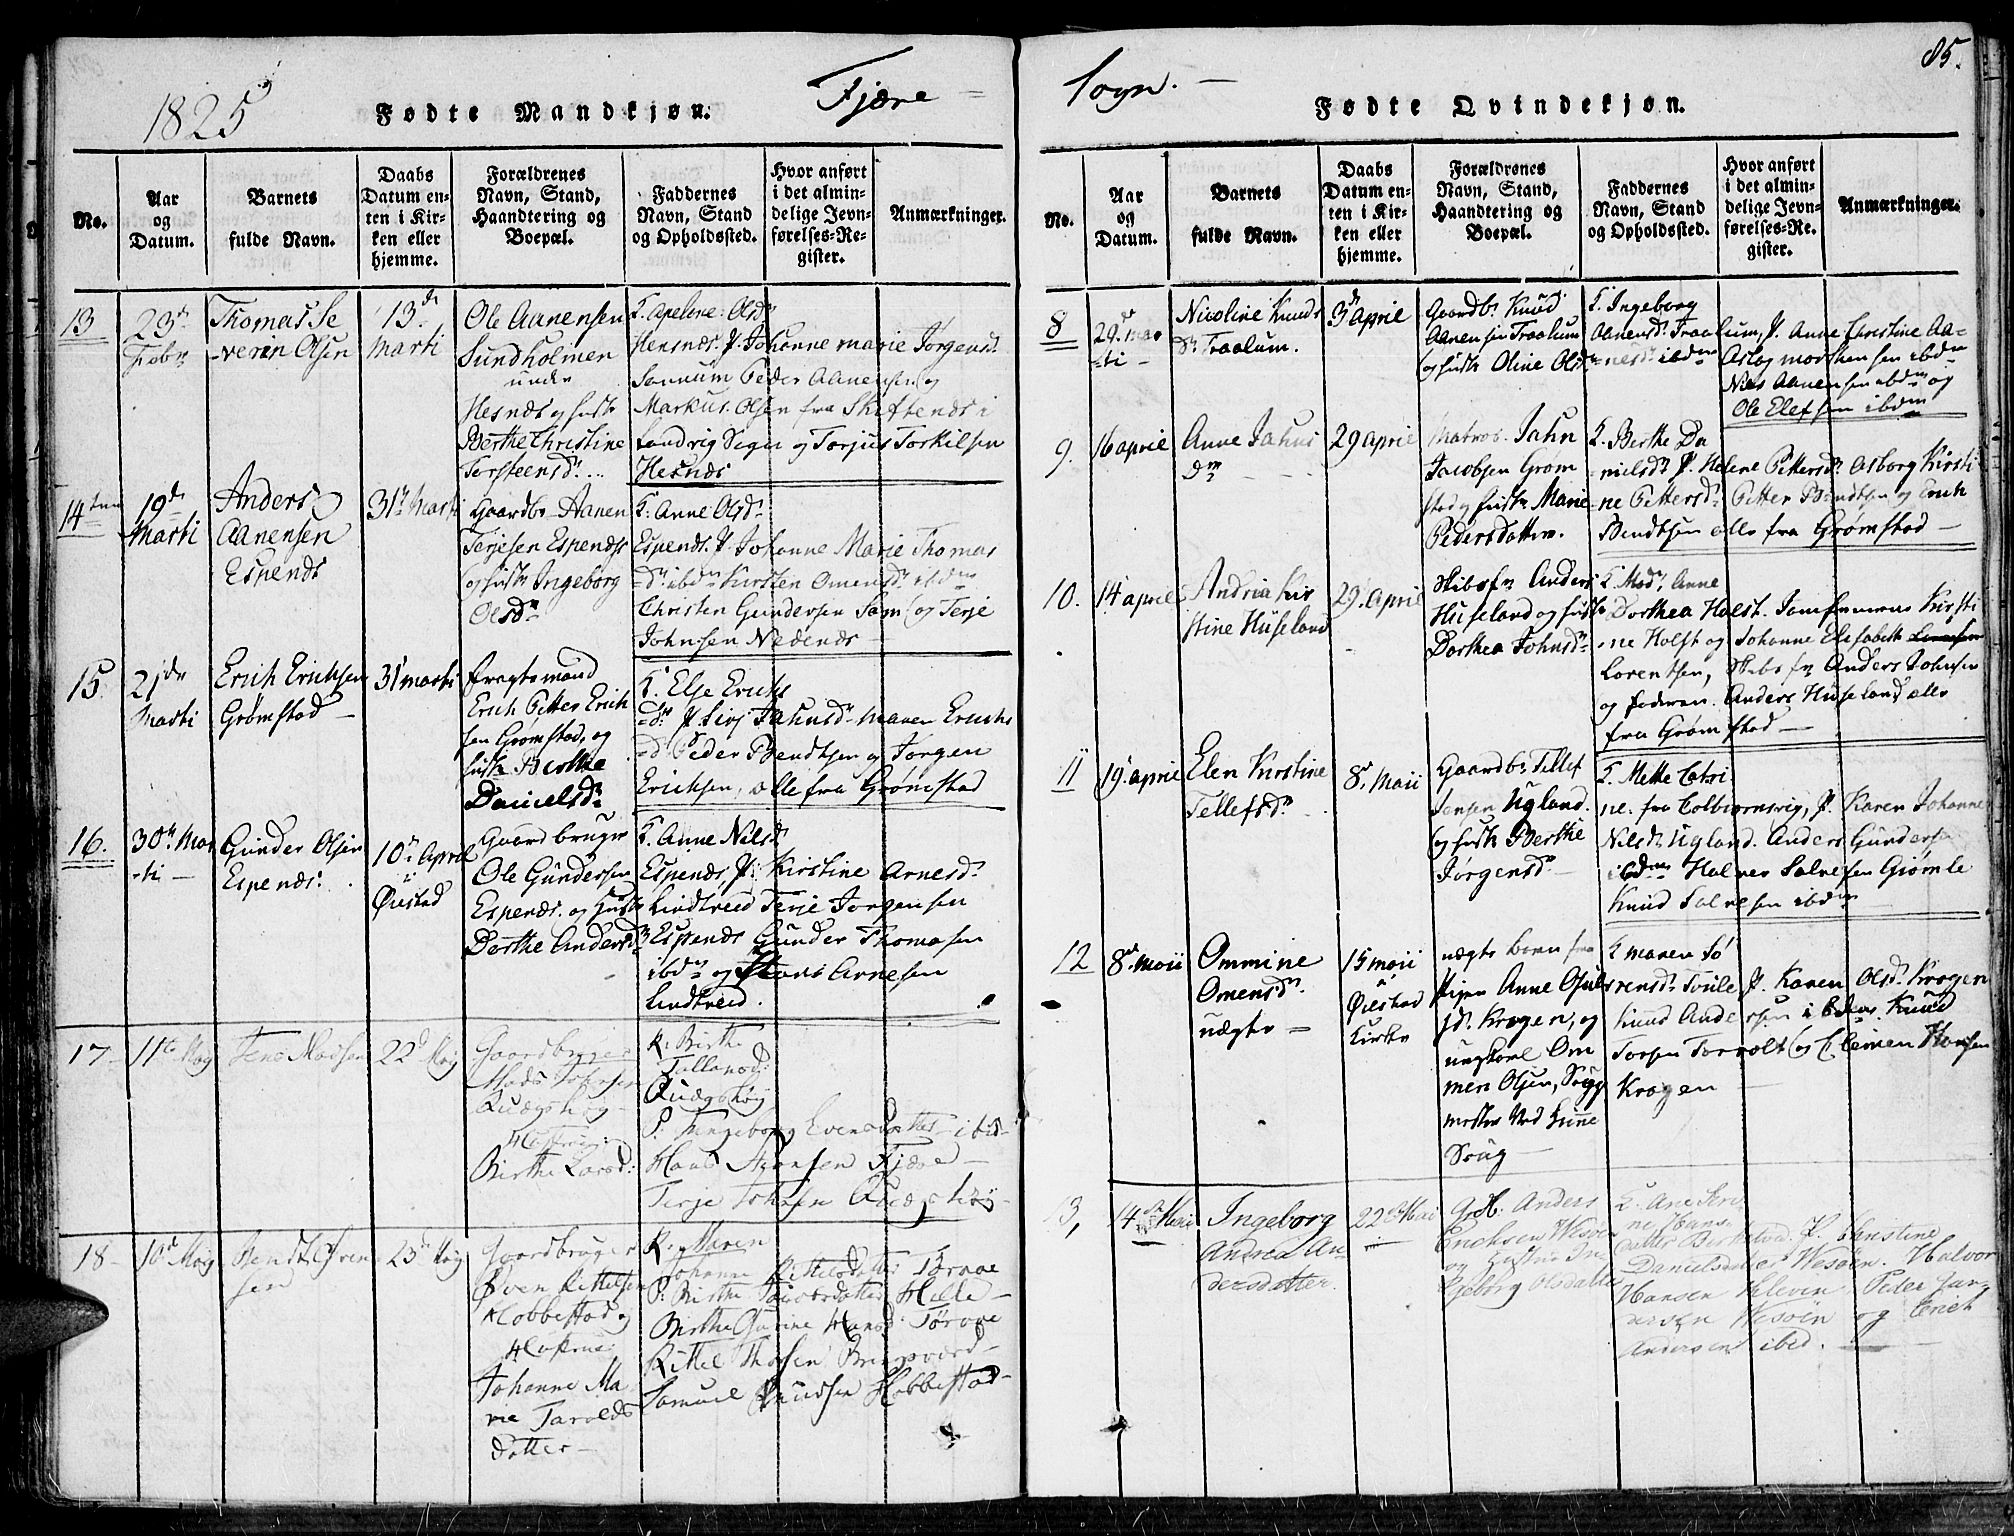 85.
1825
Fødte Mandkjøn.
Fjære
Sogn.
Fødte Qvindekjøn.
No.
Aar og Datum.
Barnets fulde Navn.
Daabs Datum enten i Kirken eller hjemme.
Forældrenes Navn, Stand, Haandtering og Boepæl.
Faddernes Navn, Stand og Opholdssted.
Hvor anført i det almindelige Jevnførelses-Register.
Anmærkninger.
13
23d Febr
Thomas Se
-verin Olsen
13d Marti
Ole Aanensen
Sundholmen
under
Hesnæs og hust
Berthe Christine
Tersteensd.
Hesnæs. P. Johanne Marie Jørgensd.
Sannum Peder Aanensen og
Markus Olsen fra Skiftenæs i
Landvig Sogn og Torjus Torkilsen
Hesnæs
14
19d Marti
Anders
Aanensen
Espenæs
31 Marti
Gaardbr Aanen
Terjesen Espenæs
og hust Ingeborg
Olsd
F. Anne Olsd
Espenæs. P. Johanne Marie Thomas
d ibdm Kirsten Omensd ibdm
Christen Gundersen Søm og Terje
Johnsen Nedenæs
15.
21d Marti
Erich Erichsen
Grømstad
31 marti
fragtemand
Erich Petter Erich
sen Grømstad, og
hust Berthe
Danielsd
F. Else Erichs
d. P. Siri Jahnsd Maren Erichs
d Peder Bendtsen og Jørgen
Erichsen, alle fra Grømstad
16.
30 Mar
-ti
Gunder Olsen
Espenæs.
10 April
i
Øiestad
Gaardbruger
Ole Gundersen
Espenæs. og Hust
Dorthe Andersd
F. Anne Nilsd
Espenæs, P. Kirstine Arnesd
Lindtveid Terje Jørgensen
Espenæs Gunder Thomasen
ibdm og Arnesen
Lindtveid.
17
11te May
Jens Madsen
22d May
Gaardbruger
Mads Johnsen
Qvægshøy
Hustrue
Birthe Larsd:
K. Birthe
Tallansd:
Qvægshøy
P. Ingeborg Evensdatter ibd
Hans Hansen Fjære
Terje Johnsen Qvægshøy
18
10d May
Bendt Øven
sen
23d May
Gaardbruger
Øven Kittelsen
Hobbestad og
Hustrue
Johanne Ma
rie Tarolds
Datter
K. Maren
Johanne Kittelsdatter Tørøe
P. Birthe Jacobsdatter Hille
Birthe Gurine Hansd. Tørøe
Kittel Thorsen Bringsværd
Samuel Knudsen Hobbestad
No.
Aar og Datum.
Barnets fulde Navn.
Daabs Datum enten i Kirken eller hjemme.
Forældrenes Navn, Stand, Haandtering og Boepæl.
Faddernes Navn, Stand og Opholdssted.
Hvor anført i det almindelige Jevnførelses-Register.
Anmærkninger.
8
29 mar
-ti
Nicoline Knuds
d. Traalum.
3 april
Gaardb. Knud
Aanensen Traalum
og hust Oline Olsd
F. Ingeborg
Aanensd. Traalum, P. Anne Christine Aa-
-nesd ibdm Aslag Mortensen ibdm
Niels Aanensen ibdm og
Ole Elefsen ibdm
9.
16 april
Anne Jahns
dm
29 april
Matros. Jahn
Jacobsen Grøm
stad og hust Marie
Pedersdatter.
F. Berthe Da
nielsd P. Helene Pettersd. Asborg Kirsti
ne Pettersd. Petter Bendtsen og Erich
Bendtsen alle fra Grømstad
10.
14 april
Andria Kir
stine Huseland
29. April
Skibsf. Anders
Huseland og hust
Dorthea Johnsd
F. Mad. Anne
Dorthea Holst. Jomfruerne Kirsti
ne Holst og Johanne Elisabeth
Lorentsen, Skibsf. Anders Johnsen
og faderen Anders Huseland alle
fra Grømstad
11
19 april
Elen Kirstine
Tellefsd
8. Maii
Gaardb. Tellef
Jensen Ugland.
og hust Berthe
Jørgensd
F. Mette Cathri
ne. fra Colbiørnsvig, P. Karen Johanne
Nilsd. Ugland. Anders Gundersen
ibdm Halvor Salvesen Grømle
Knud Salvesen ibdm
12
8d Maii
Ommine
Omensd.
uægte
15 maii
i
Øiestad
Kirke
uægte barn fra
Pigen Anne Osuls
d. Krogen, og
ungkarl Om
men Olsen,
Soug
F. Maren Sø
rensd. Tvile, P. Karen Olsd. Krogen
Knud Andersen ibdm Knud
Torsen Torvolt og Clemen Hansen
Krogen
13,
14d Mai
Ingeborg
Andrea An
dersdatter.
22d Mai
Grb. Anders
Erichsen Wesøen
og Hustrue In
geborg Olsdatter
F. Ane Seri
ne Hans
datter P. Christine
Danielsdatter Wesøen. Halvor
Hansen Kleven Peder Jør
gensen Wesøen og Erich
Andersen ibid.